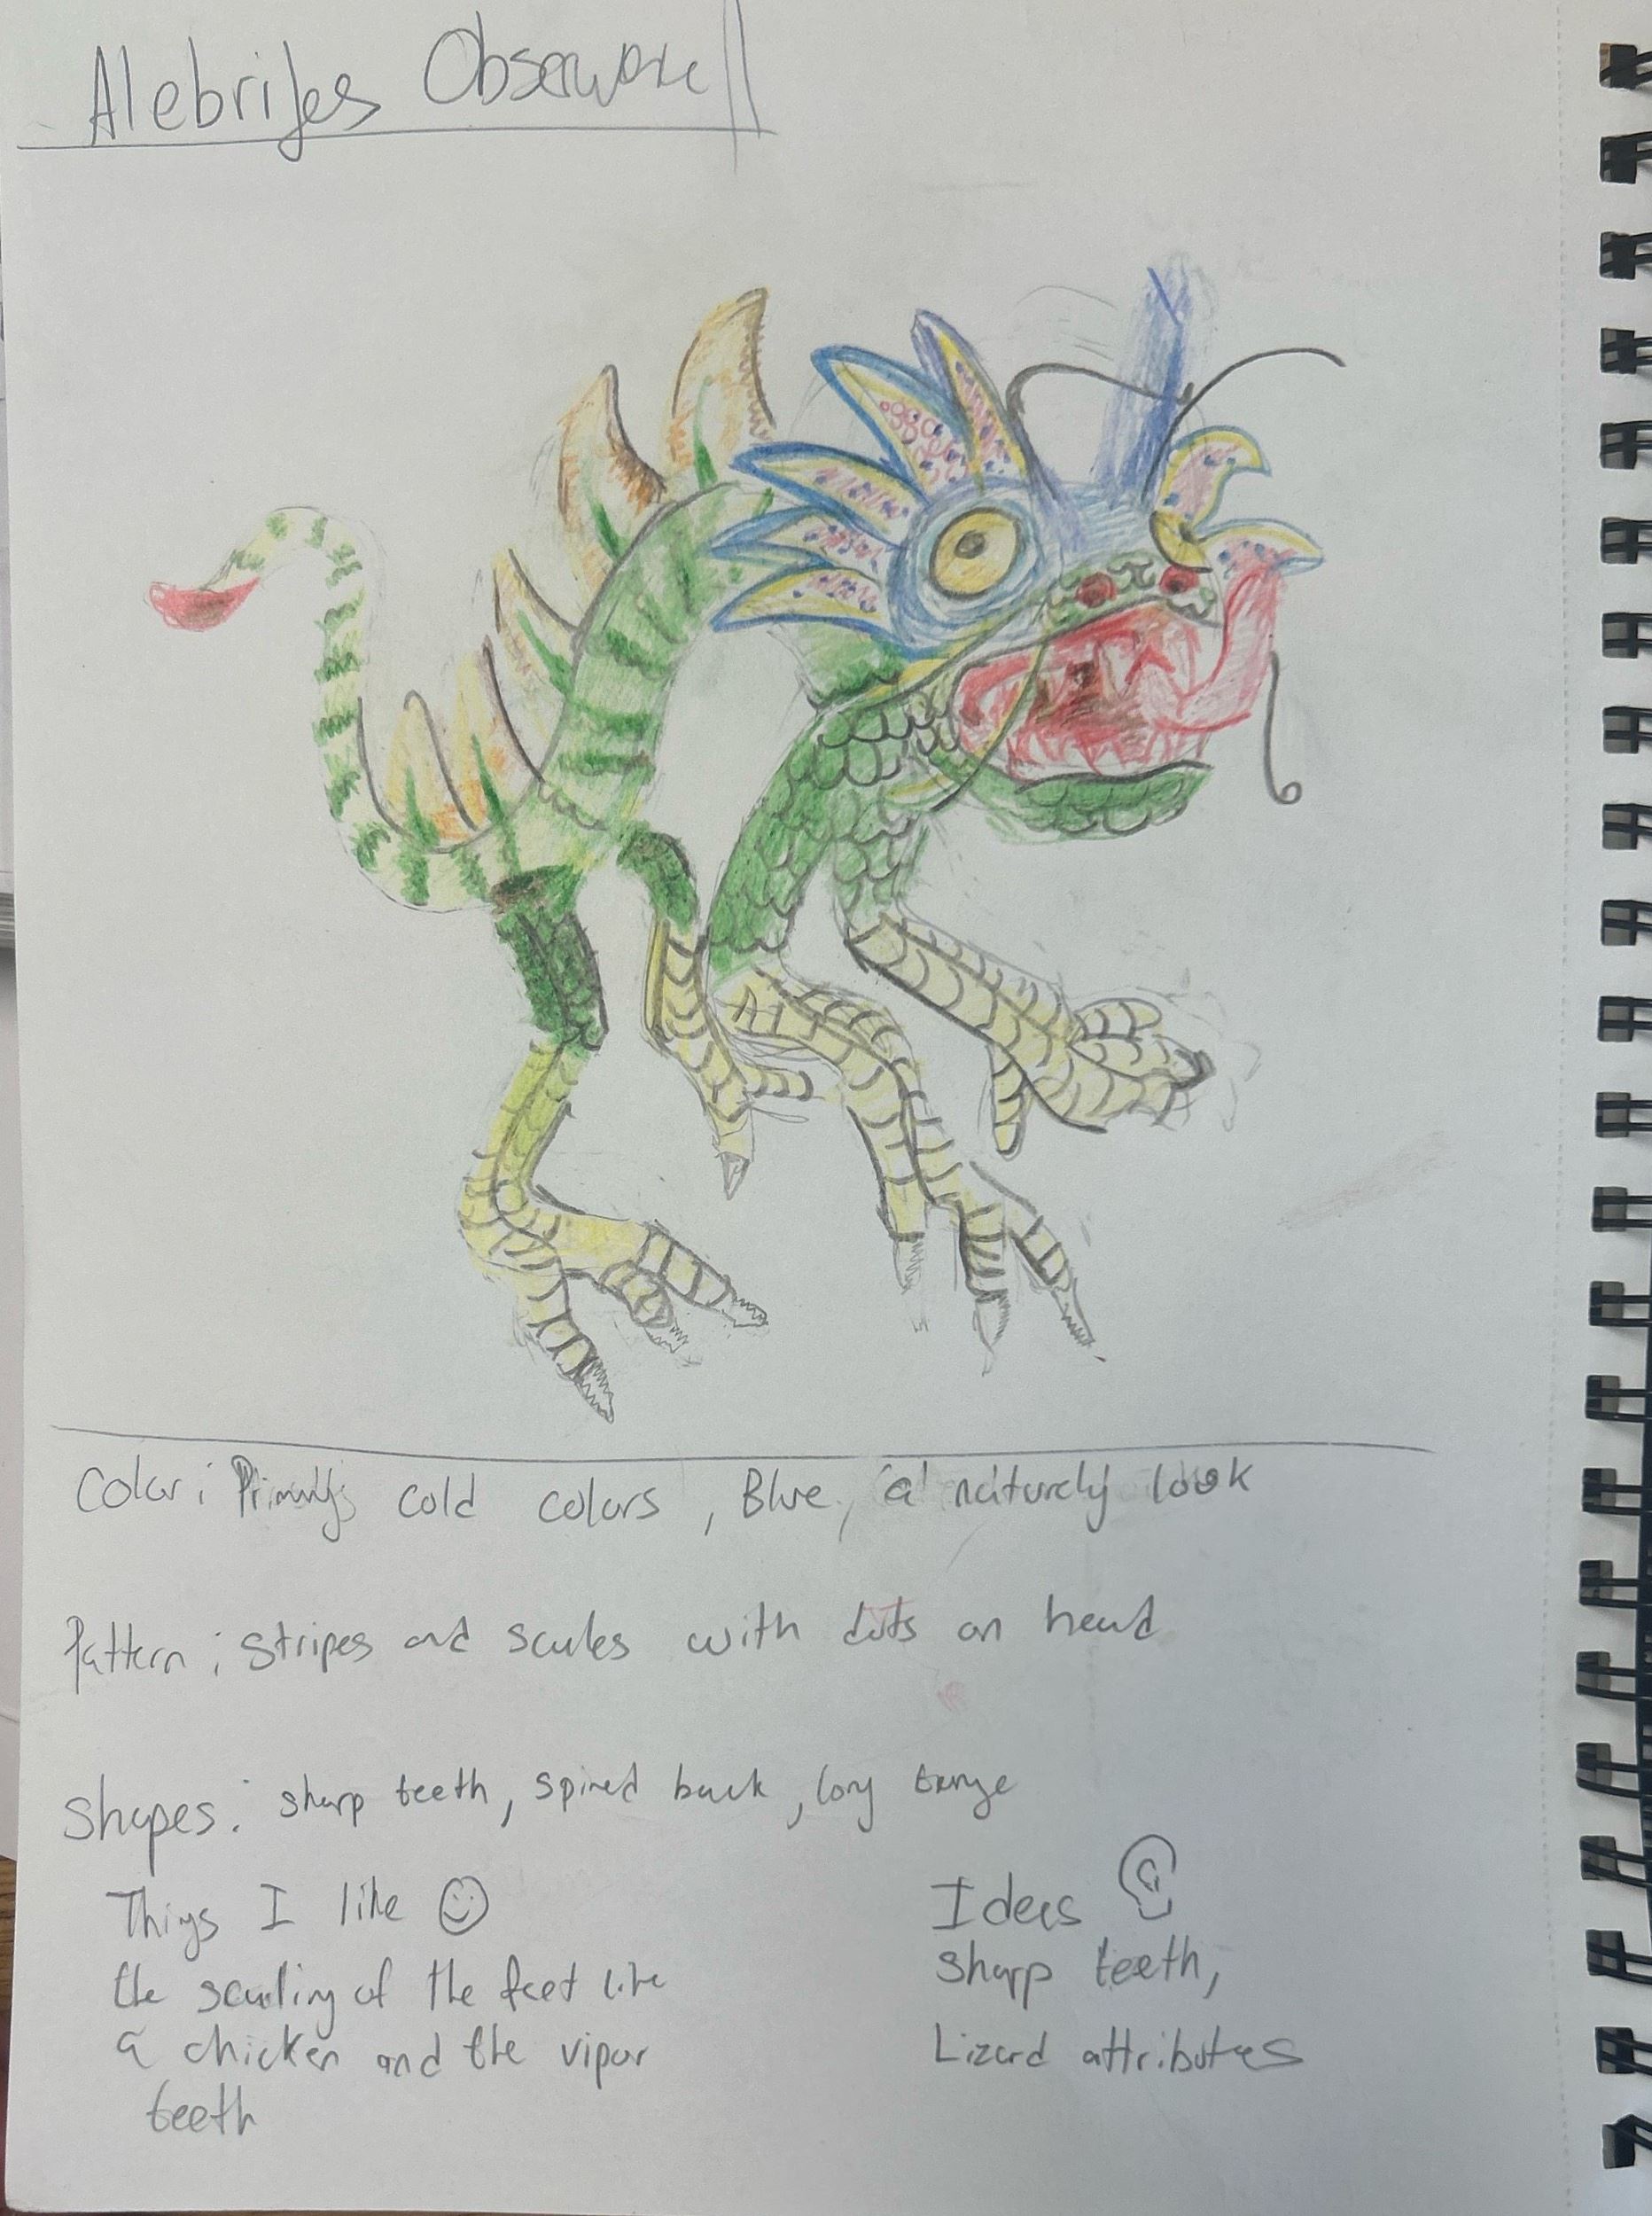 Alebrijes
Color: Primarly cold colors, Blue, a naturely look
Pattern: Stripes and scales with dots on head
Shapes: sharp teeth, spined back, long tonge
Things I like
the scaling of the feet like
a chicken and the vipor
teeth
Ideas
Sharp teeth,
Lizard attributes